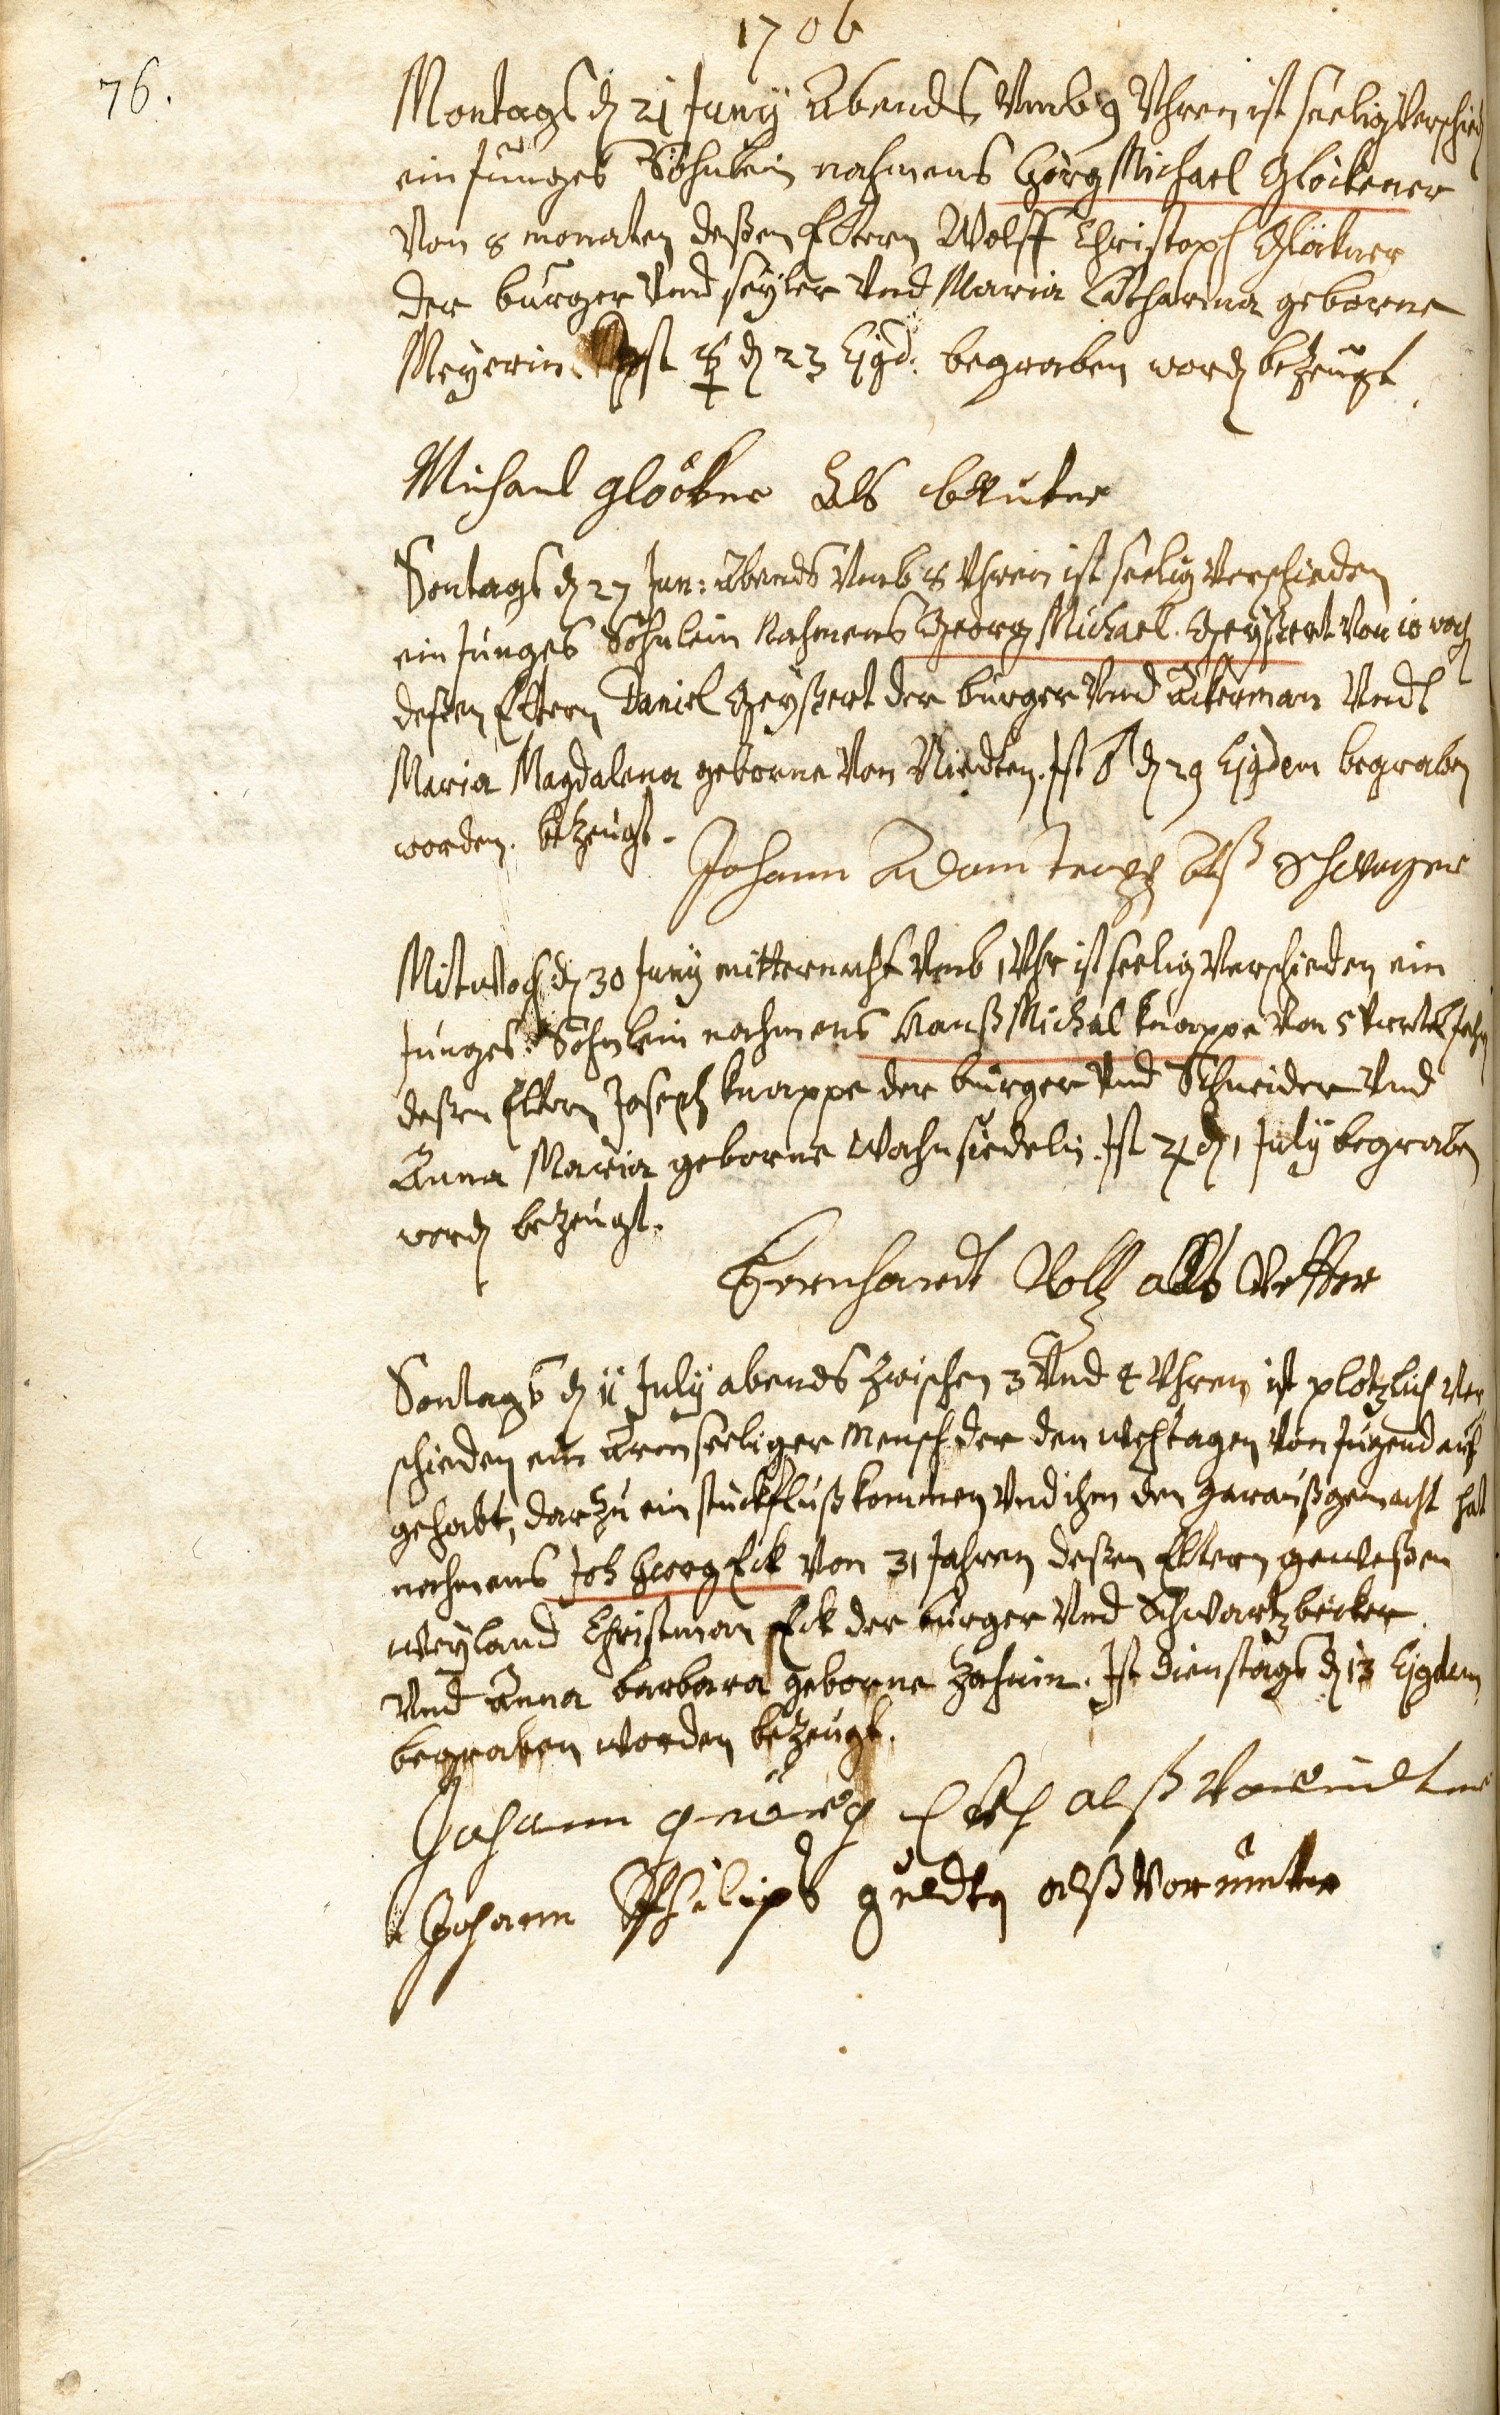 1706
76.
Montags dn 21 Juny Abends Umb 9 Uhren ist seelig Verschieden
ein Junges Söhnlein nahmens Görg Michael Glöckener
Von 8 monaten deßen Eltern Wolff Christoph Glöckner
der burger Und seyler Und Maria Catharina geborne
Meyerin. Ist ☿ dn 23 Ejsd: begraben word bezeugt
Michael glöckner Als
Sontags dn 27 Jun: Abends Umb 8 Uhren ist seelig Verschieden
ein Junges Söhnlein Nahmens Georg Michael Geyßert Von 10 woch
deßen Eltern Daniel Geyßert der burger Und Ackerman Und
Maria Magdalena geborne Von Riedten. Ist ♂ dn 29 Ejsdem begraben
worden. bezeugt.
Johann Adam Alß Schwager
Mitwoch dn 30 Juny mitternacht Umb 1 Uhr ist seelig Verschieden ein
Junges Söhnlein nahmens Hanß Michal Knappe Von 5 Viertel Jahr
deßen Eltern Joseph Knappe der burger Und Schneider Und
Anna Maria geborne Wahnsiedelin. Ist ♃ dn 1 July begraben
word bezeugt.
Bernhardt Voltz alß Vetter
Sontags dn 11 July abends zwischen 3 Und 4 Uhren ist plötzlich Ver
schieden ein Armseeliger Mensch der den wehtagen Von Jugend auf
gehabt, darzu ein stückfluß kommen Und ihm den garauß gemacht hat
nahmens Joh Georg Eck Von 31 Jahren deßen Eltern geweßen
weyland Christman Eck der burger Und Schwartzbecker
Und Anna barbara geborne Zahnin. Ist dienstags dn 13 Ejsdem
begraben worden bezeugt.
Johann alß
Johann Philips alß Vormunter